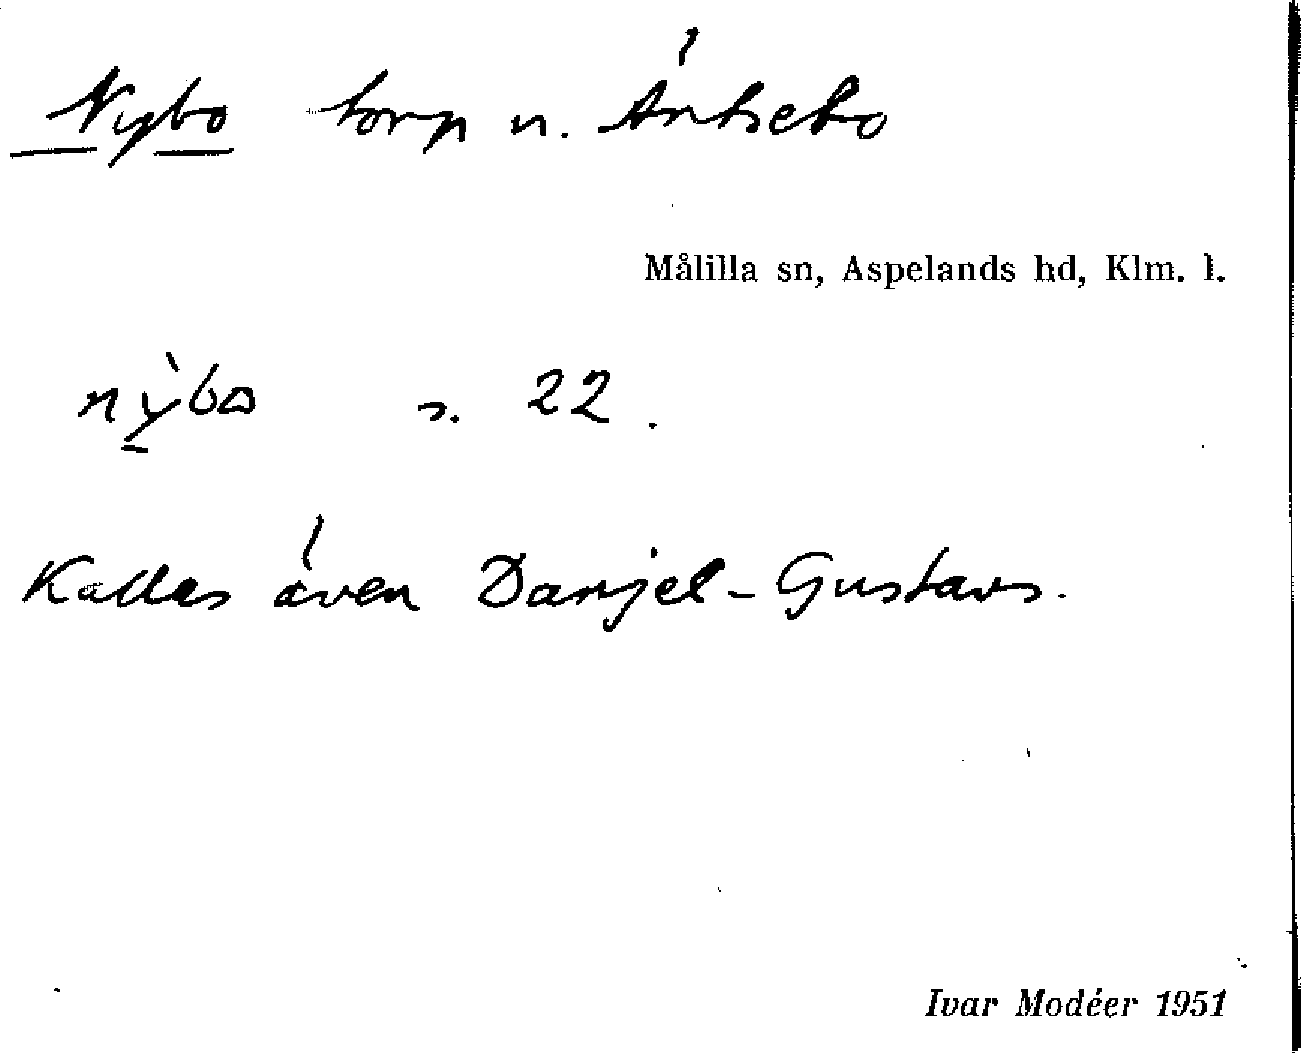 Nybo torp u. Äntsebo
Målilla sn, Aspelands hd, Klm. l.
nỳbo s. 22.
Kallas även Danjel-Gustavs.
Ivar Modéer 1951